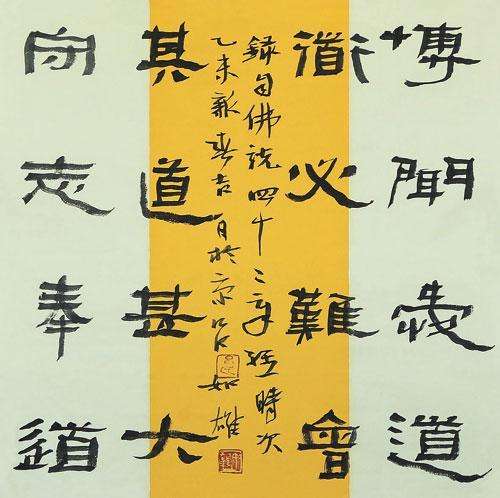 博聞愛道
道必難會
守志奉道
其道甚大
録自佛說四十二章經時次
乙未新春吉日於京如雄